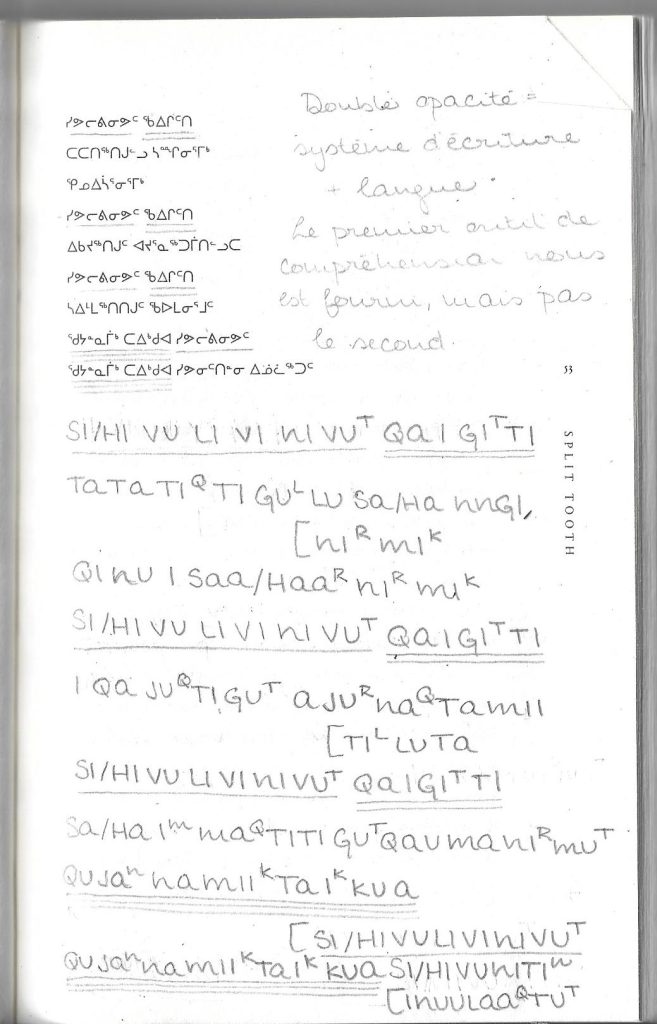 ᓯᕗᓕᕕᓂᕗᑦ ᖃᐃᒋᑦᑎ
ᑕᑕᑎᖅᑎᒍᓪᓗ ᓴᙱᓂᕐᒥᒃ
ᕿᓄᐃᓵᕐᓂᕐᒥᒃ
ᓯᕗᓕᕕᓂᕗᑦ ᖃᐃᒋᑦᑎ
ᐃᑲᔪᖅᑎᒍᑦ ᐊᔪᕐᓇᖅᑐᒦᑎᓪᓗᑕ
ᓯᕗᓕᕕᓂᕗᑦ ᖃᐃᒋᑦᑎ
ᓴᐃᒻᒪᖅᑎᑎᒍᑦ ᖃᐅᒪᓂᕐᒧᑦ
ᖁᔭᓐᓇᒦᒃ ᑕᐃᒃᑯᐊ ᓯᕗᓕᕕᓂᕗᑦ
ᖁᔭᓐᓇᒦᒃ ᑕᐃᒃᑯᐊ ᓯᕗᓂᑦᑎᓐᓂ ᐃᓅᓛᖅᑐᑦ
Double opacité =
système d'écriture
+ langue.
Le premier outil de
compréhension nous
est fourni, mais pas
le second.
53
SPLIT TOOTH
SI/HI VU LI VI NI VUᵀ QA I GIᵀTI
TATATIQTI GULLU SA/HA NNGI,
[NIRMIK
QI NU I SAA/HAARNIRMIK
SI/HI VU LI VI NI VUT QAIGITTI
I QA JUQTIGUT AJURNAQTAMII
[TILLUTA
SI/HI VU LI VI NI VUT QAIGITTI
SA/HA IMMAQTITI GUTQAUMANIRMUT
QUJANNAMIIKTAIKKUA
[SI/HIVULIVINIVUT
QUJANNAMIIKTAIKKUA SI/HIVUNITIN
[INUULAAQTUT